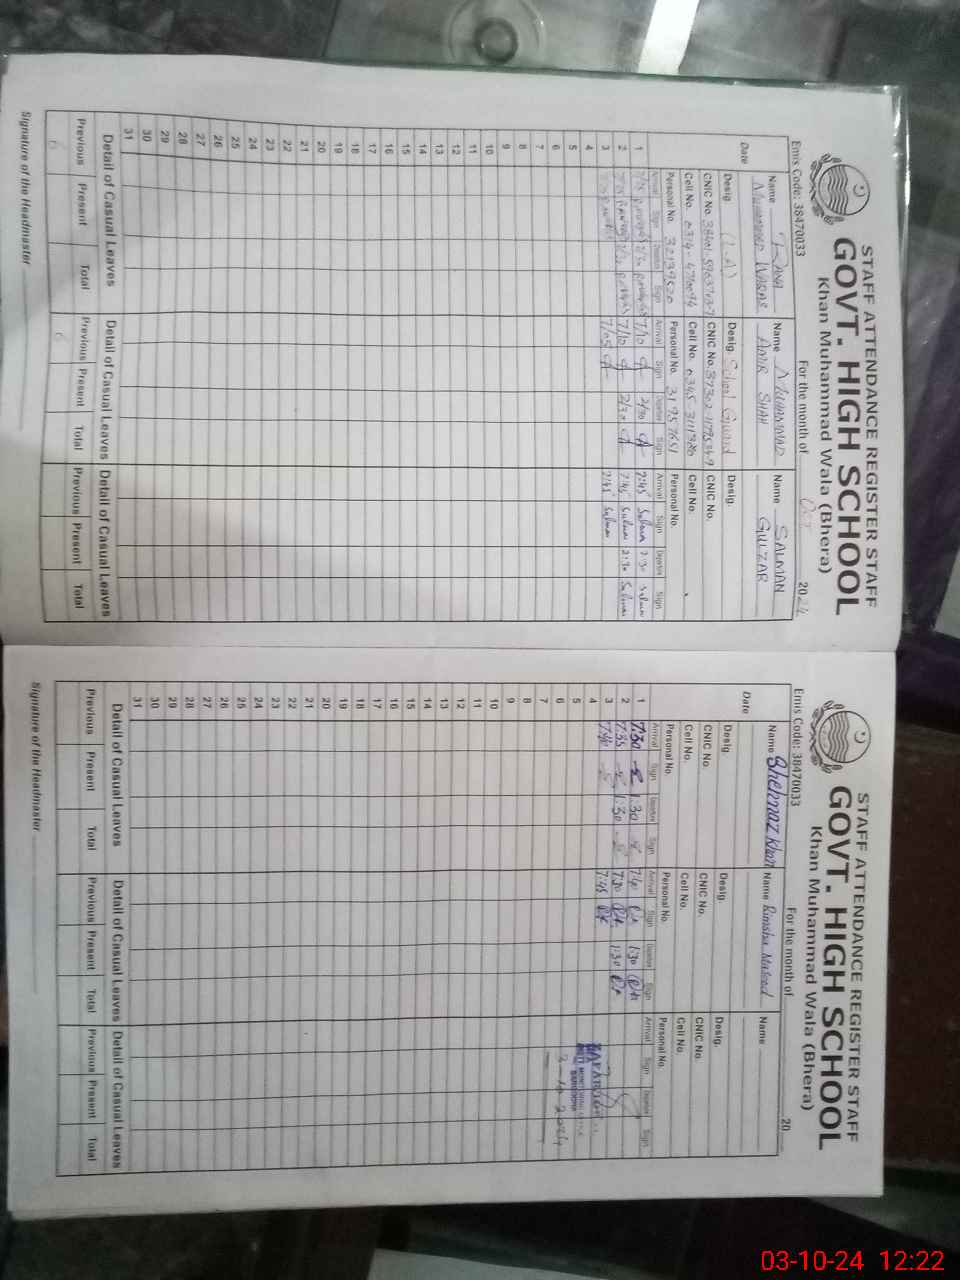 STAFF ATTENDANCE REGISTER STAFF
GOVT. HIGH SCHOOL
Khan Muhammad Wala (Bhera)
Emis Code: 38470033 For the month of Oct 2024
Date
Name RANA MUHAMMAD WARAS
Desig. (L.A)
CNIC No.
Cell No.
Personal No. 32139520
Name MUHAMMAD AMIR SHAH
Desig. School Guard
CNIC No.
Cell No. 0345-3111386
Personal No. 31957651
Name SALMAN GULZAR
Desig.
CNIC No.
Cell No.
Personal No.
Arrival Sign Depature Sign Arrival Sign Depature Sign Arrival Sign Depature Sign
1 7/10 2/30 7:45 Salman 2:30 Salman
2 7/10 2/30 7:45 Salman 2:30 Salman
3 7/05 7:45 Salman
4
5
6
7
8
9
10
11
12
13
14
15
16
17
18
19
20
21
22
23
24
25
26
27
28
29
30
31
Detail of Casual Leaves Detail of Casual Leaves Detail of Casual Leaves
Previous Present Total Previous Present Total Previous Present Total
Signature of the Headmaster
STAFF ATTENDANCE REGISTER STAFF
GOVT. HIGH SCHOOL
Khan Muhammad Wala (Bhera)
Emis Code: 38470033 For the month of 20
Date
Name Shehnaz Khan
Desig.
CNIC No.
Cell No.
Personal No.
Name Rimsha
Desig.
CNIC No.
Cell No.
Personal No.
Name
Desig.
CNIC No.
Cell No.
Personal No.
Arrival Sign Depature Sign Arrival Sign Depature Sign Arrival Sign Depature Sign
1 7:30 1:30 7:40 1:30
2 7:35 1:30 7:30 1:30
3 7:40 7:45
4
5
6
7
8
9
10
11
12
13
14
15
16
17
18
19
20
21
22
23
24
25
26
27
28
29
30
31
SARGODHA
3-10-2024
Detail of Casual Leaves Detail of Casual Leaves Detail of Casual Leaves
Previous Present Total Previous Present Total Previous Present Total
Signature of the Headmaster
03-10-24 12:22